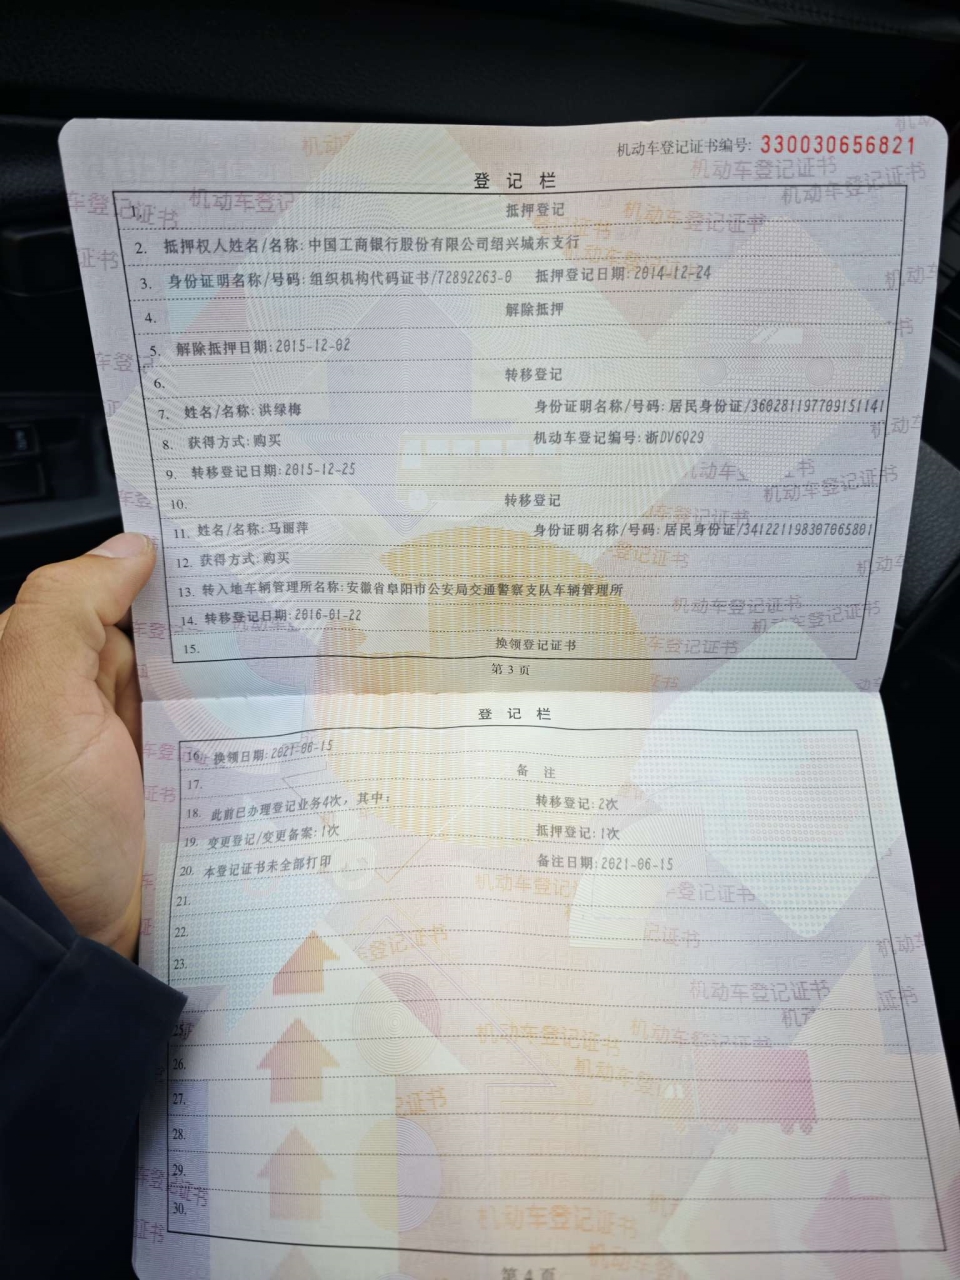 机动车登记证书编号: 330030656821
登 记 栏
1. 抵押登记
2. 抵押权人姓名/名称: 中国工商银行股份有限公司绍兴城东支行
3. 身份证明名称/号码: 组织机构代码证书/72892263-0 抵押登记日期: 2014-12-24
4. 解除抵押
5. 解除抵押日期: 2015-12-02
6. 转移登记
7. 姓名/名称: 洪绿梅 身份证明名称/号码: 居民身份证/360281197709151141
8. 获得方式: 购买 机动车登记编号: 浙DV6Q29
9. 转移登记日期: 2015-12-25
10. 转移登记
11. 姓名/名称: 马丽萍 身份证明名称/号码: 居民身份证/341221198307065801
12. 获得方式: 购买
13. 转入地车辆管理所名称: 安徽省阜阳市公安局交通警察支队车辆管理所
14. 转移登记日期: 2016-01-22
15. 换领登记证书
第 3 页
登 记 栏
16. 换领日期: 2021-06-15
17. 备 注
18. 此前已办理登记业务4次，其中: 转移登记: 2次
19. 变更登记/变更备案: 1次 抵押登记: 1次
20. 本登记证书未全部打印 备注日期: 2021-06-15
21.
22.
23.
25.
26.
27.
28.
29.
30.
第 4 页